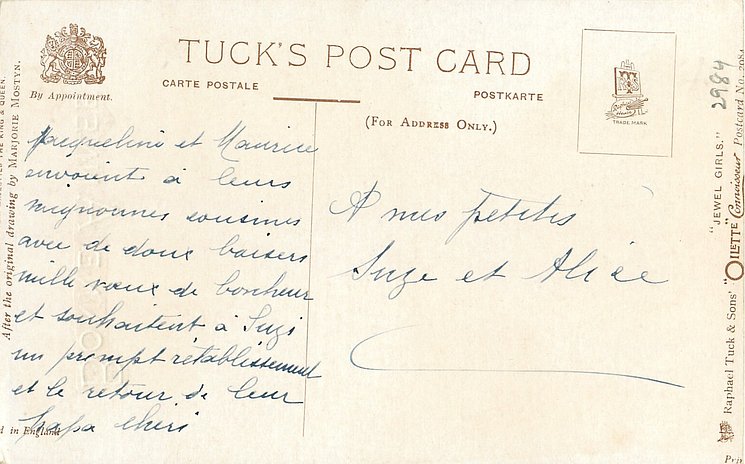 By Appointment.
TUCK'S POST CARD
CARTE POSTALE
POSTKARTE
(FOR ADDRESS ONLY.)
TRADE MARK
Jacqueline et Maurice
envoient à leurs
mignonnes cousines
avec de doux baisers
mille vœux de bonheur
et souhaitent à Suzi
un prompt rétablissement
et le retour de leur
papa chéri
A mes petites
Suze et Alice
2984
After the original drawing by MARJORIE MOSTYN.
THE KING & QUEEN.
d in England
"JEWEL GIRLS."
Raphael Tuck & Sons' "OILETTE" Connoisseur Postcard No. 2984